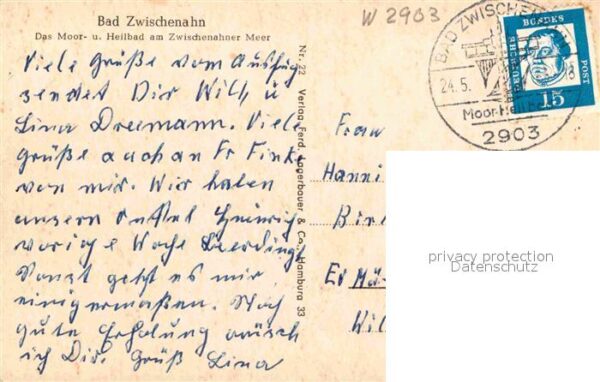 Bad Zwischenahn
Das Moor- u. Heilbad am Zwischenahner Meer
W 2903
BAD ZWISCHENAHN
24.5.
Moor-Heilbad
2903
DEUTSCHE BUNDESPOST
15
Viele Grüße vom Ausflug
sendet Dir Willy u
Lina Dreemann. Viele
grüße auch an Fr Finke
von mir. Wir haben
unsern Onkel Heinrich
vorige Woche beerdingt
Sonst geht es mir
einigermaßen. Noch
gute Erholung wünsch
ich Dir. Grüß Lina
Nr. 22 Verlag Ferd. Lagerbauer & Co., Hamburg 33
Frau
Hanni
Bir
Wil
privacy protection
Datenschutz